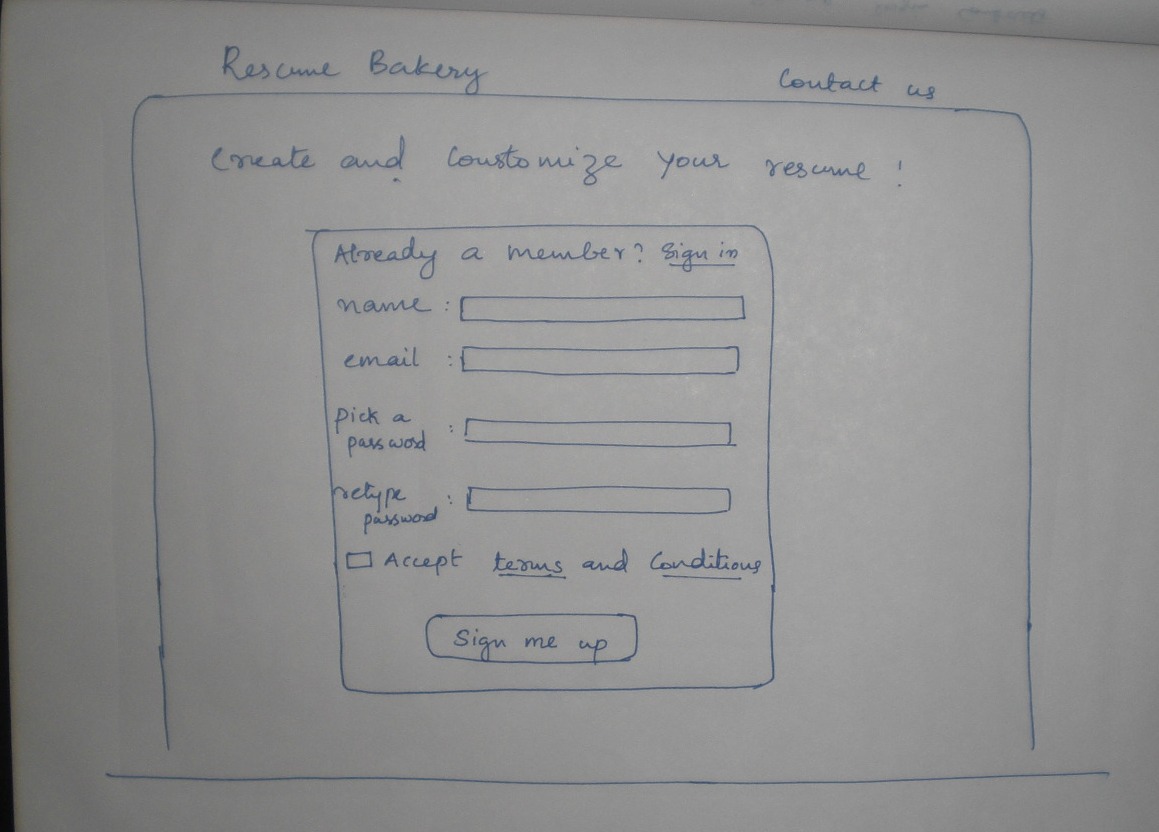 Resume Bakery
Contact us
Create and Coustomize your resume !
Already a member? Sign in
name :
email :
pick a
password :
retype
password :
Accept terms and Conditions
Sign me up